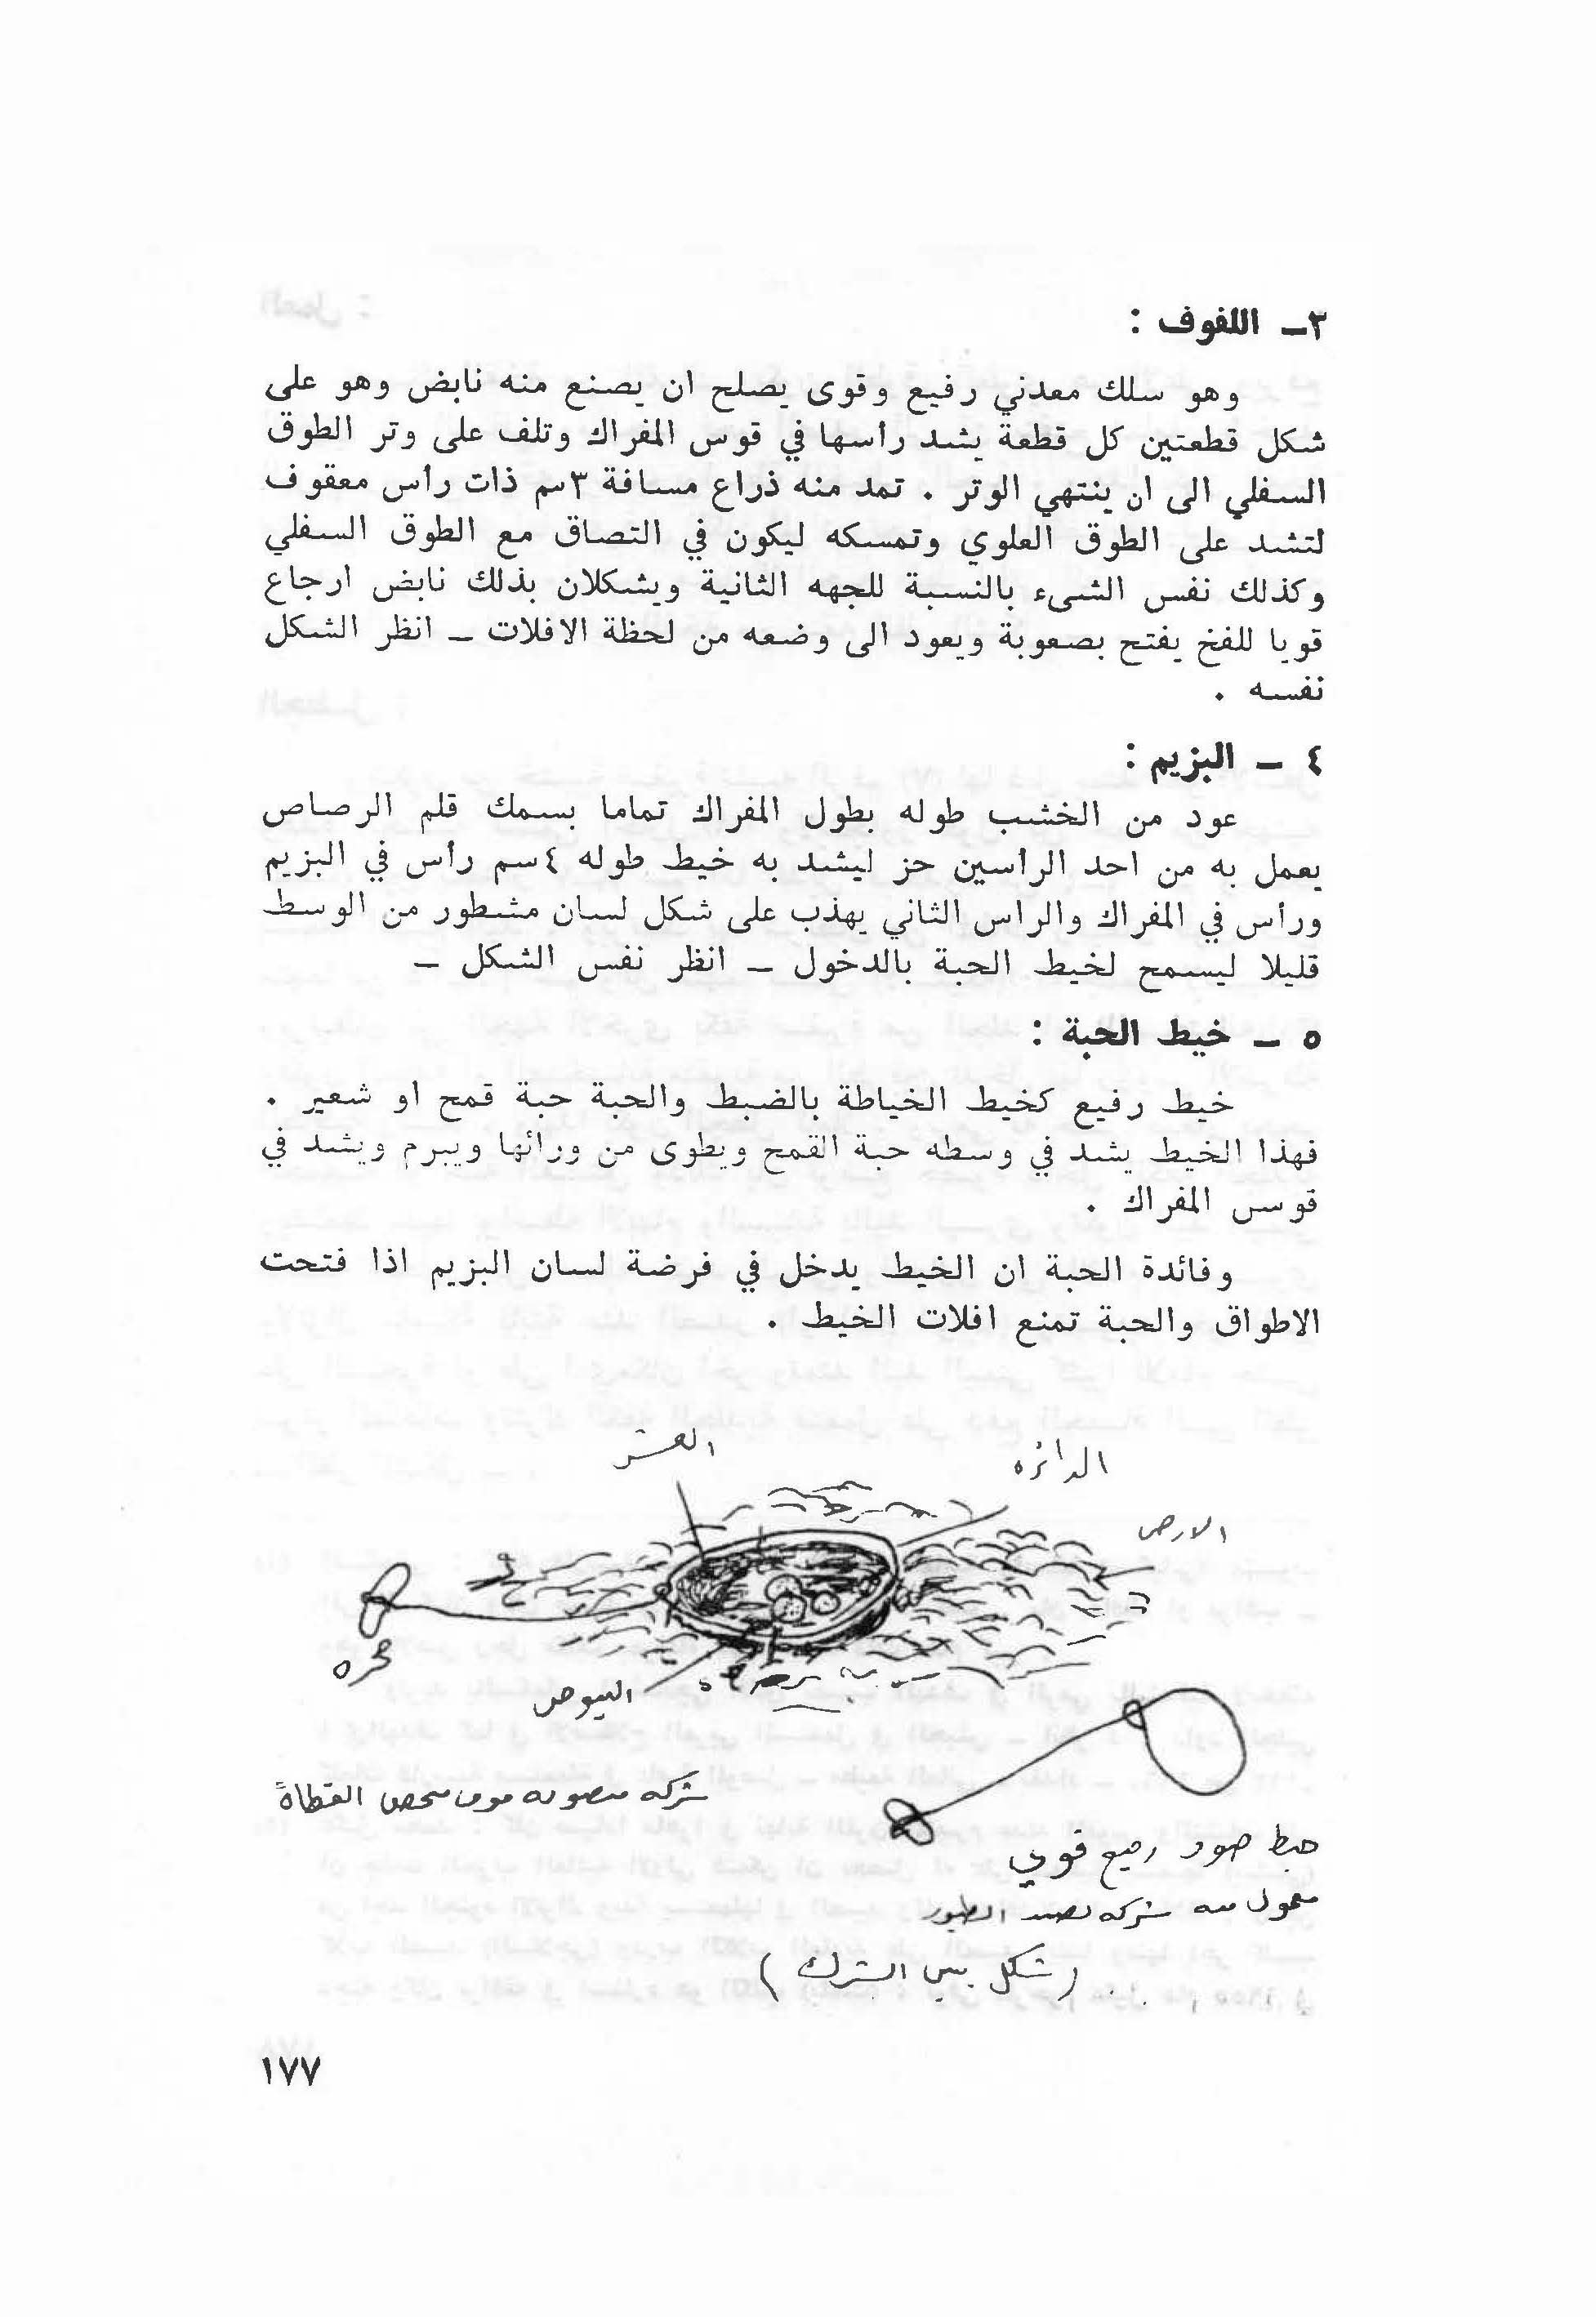 ٣ــ اللفوف :
وهو سلك معدني رفيع وقوى يصلح ان يصنع منه نابض وهو على
شكل قطعتين كل قطعة يشد رأسها في قوس المفراك وتلف على وتر الطوق
السفلي الى ان ينتهي الوتر . تمد منه ذراع مسافة ٣سم ذات رأس معقوف
لتشد على الطوق العلوي وتمسكه ليكون في التصاق مع الطوق السفلي
وكذلك نفس الشىء بالنسبة للجهه الثانية ويشكلان بذلك نابض ارجاع
قويا للفخ يفتح بصعوبة ويعود الى وضعه من لحظة الافلات ــ انظر الشكل
نفسه .
٤ ــ البزيم :
عود من الخشب طوله بطول المفراك تماما بسمك قلم الرصاص
يعمل به من احد الرأسين حز ليشد به خيط طوله ٤سم رأس في البزيم
ورأس في المفراك والراس الثاني يهذب على شكل لسان مشطور من الوسط
قليلا ليسمح لخيط الحبة بالدخول ــ انظر نفس الشكل ــ
٥ ــ خيط الحبة :
خيط رفيع كخيط الخياطة بالضبط والحبة حبة قمح او شعير .
فهذا الخيط يشد في وسطه حبة القمح ويطوى من ورائها ويبرم ويشد في
قوس المفراك .
وفائدة الحبة ان الخيط يدخل في فرضة لسان البزيم اذا فتحت
الاطواق والحبة تمنع افلات الخيط .
العش
الدائره
الارض
البيوض
شركه منصوبه فوق مفحص القطاة
خيط رفيع قوي
معمول منه شركه لصيد الطيور
( شكل يبين الشرك )
١٧٧